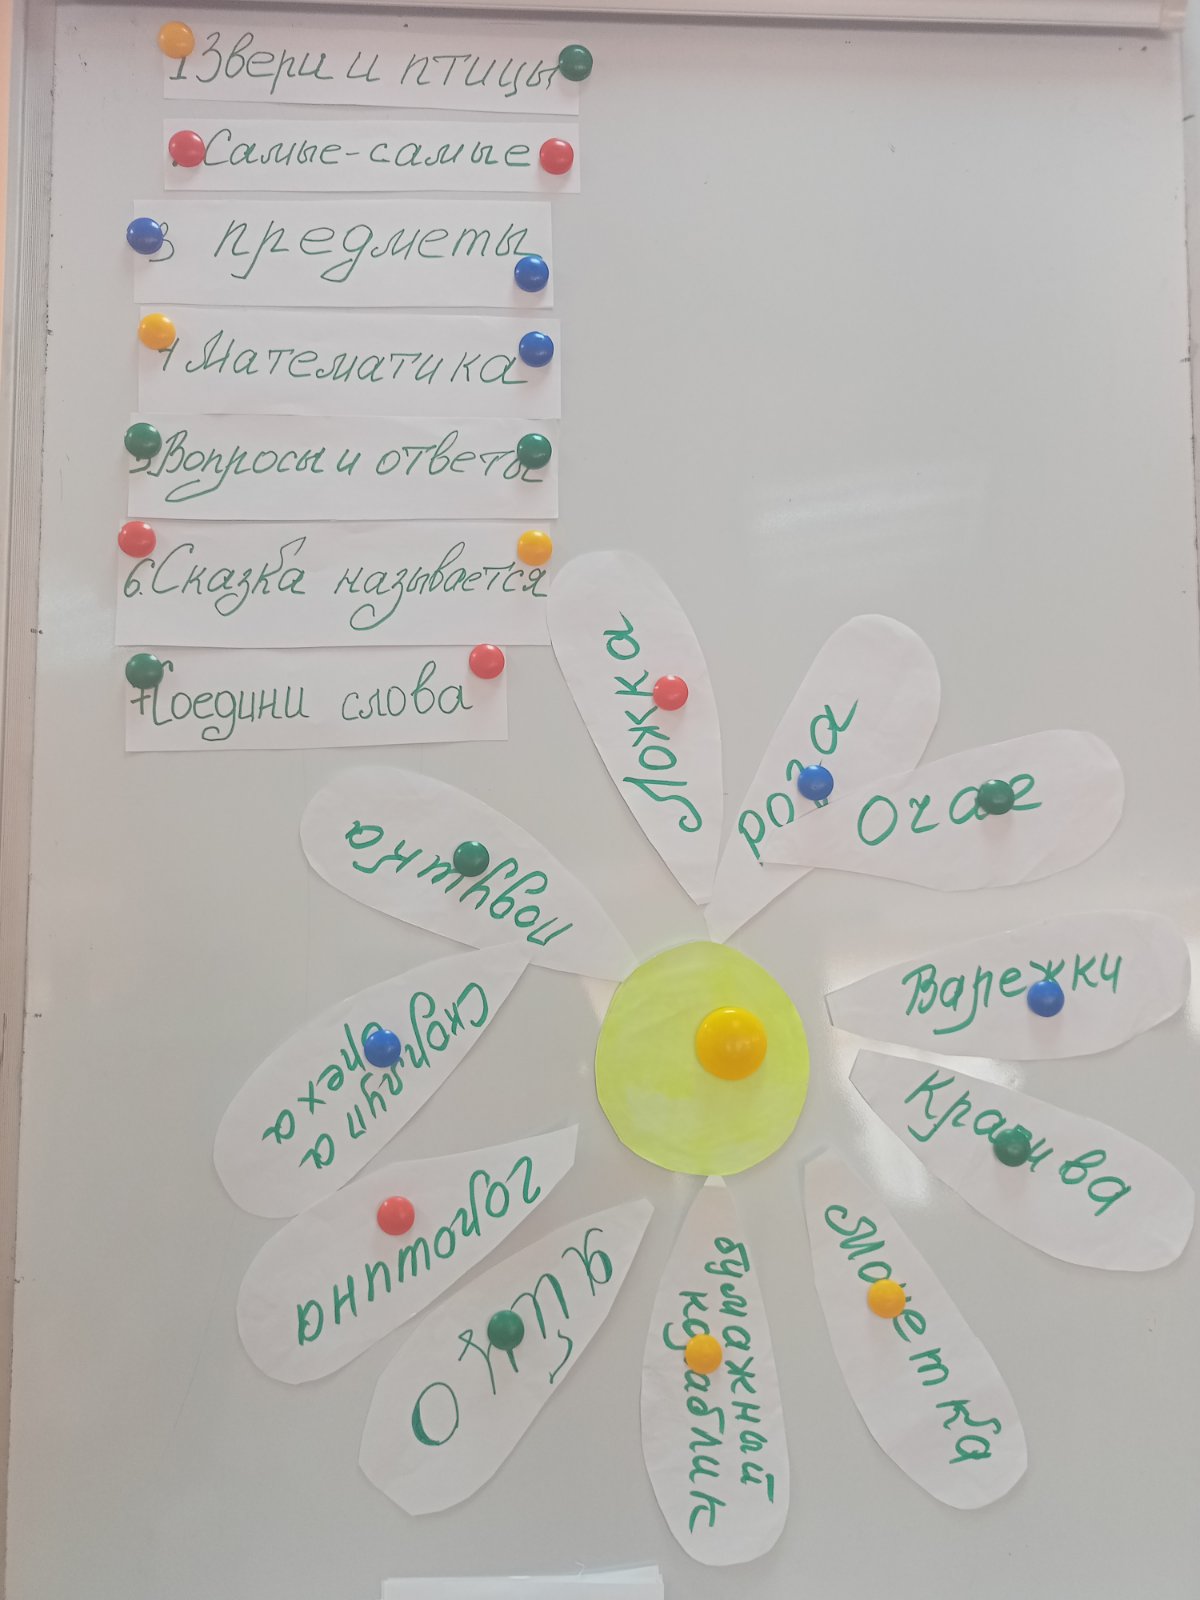 1 Звери и птицы
Самые-самые
3 предметы
4 Математика
5. Вопросы и ответы
6. Сказка называется
7 Соедини слова
Ложка
роза
Очаг
Варежки
Крапива
Монетка
бумажный
кораблик
яйцо
горошина
Скорлупа
ореха
Подушка